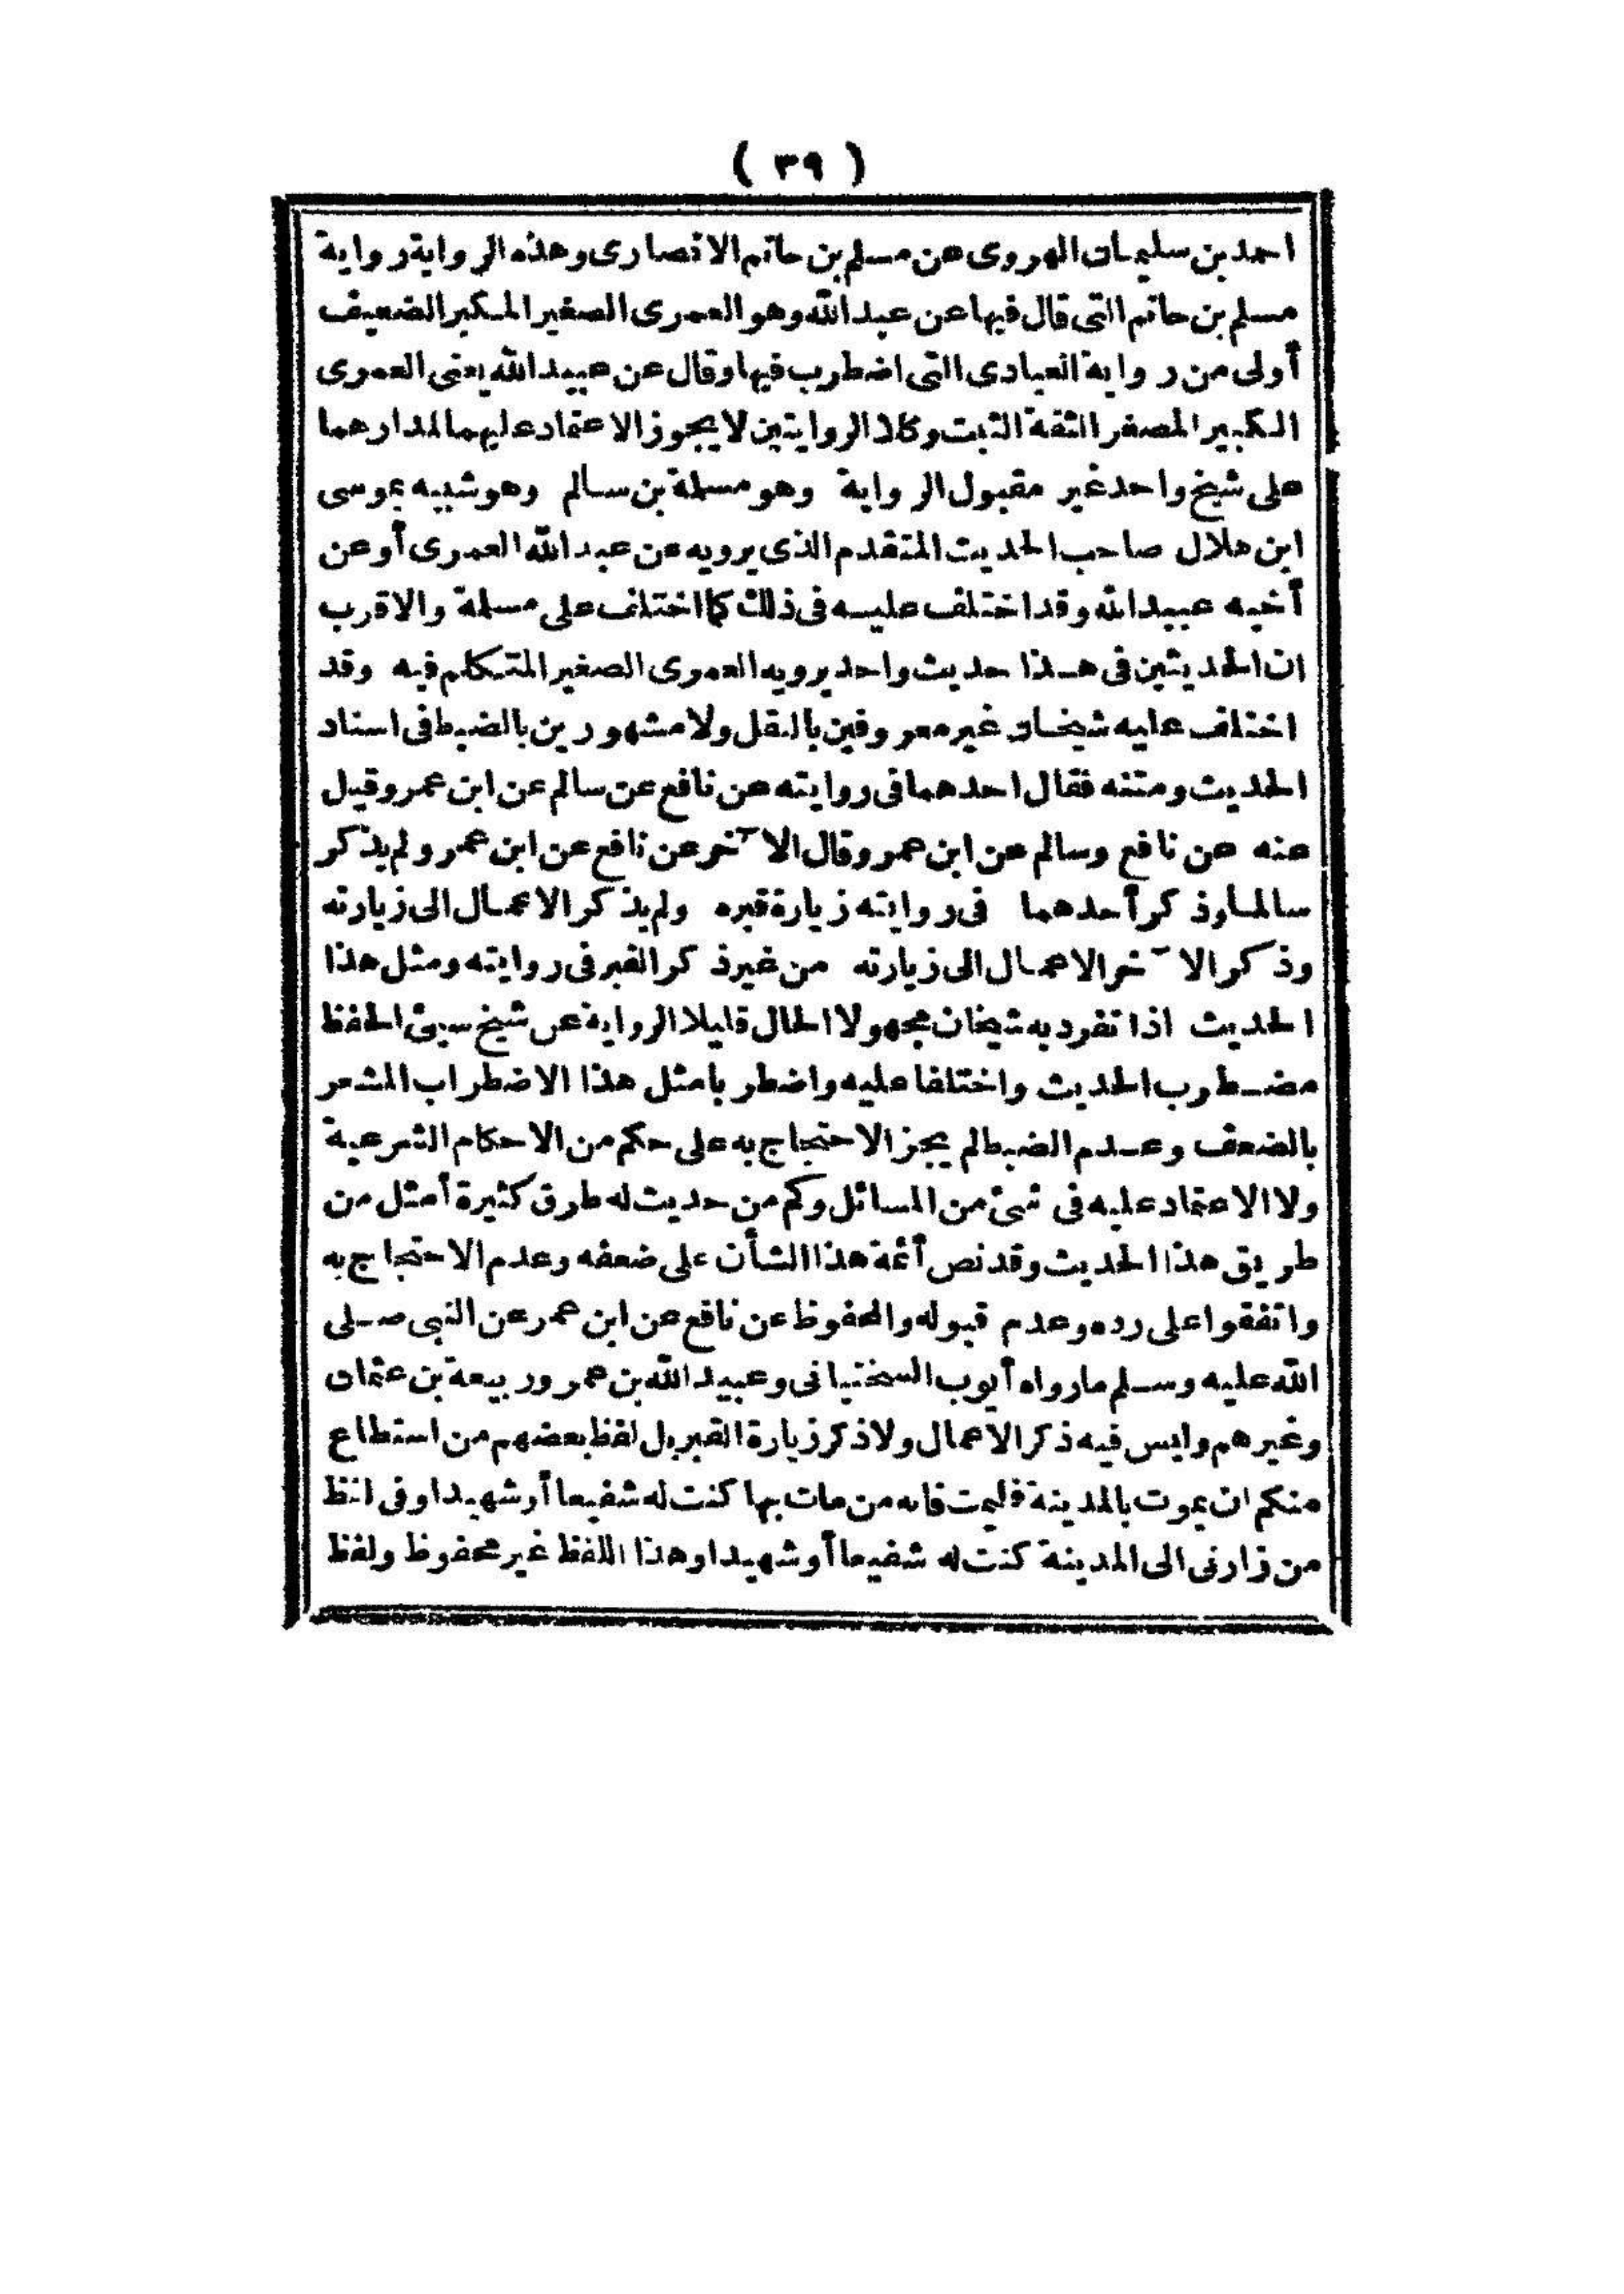 ( ٣٩ )
احمد بن سليمان الهروى عن مسلم بن حاتم الانصارى وهذه الرواية رواية
مسلم بن حاتم التى قال فيها عن عبد الله وهو العمرى الصغير المكبر الضعيف
أولى من رواية العبادى التى اضطرب فيها وقال عن عبيد الله يعنى العمرى
الكبير المصغر الثقة الثبت وكلا الروايتين لا يجوز الاعتماد عليهما لمدارهما
على شيخ واحد غير مقبول الرواية وهو مسلمة بن سالم وهو شبيه بموسى
ابن هلال صاحب الحديث المتقدم الذى يرويه عن عبد الله العمرى أو عن
أخيه عبيد الله وقد اختلف عليه فى ذلك كما اختلف على مسلمة والاقرب
ان الحديثين فى هذا حديث واحد يرويه العمرى الصغير المتكلم فيه وقد
اختلف عليه شيخان غير معروفين بالنقل ولا مشهورين بالضبط فى اسناد
الحديث ومتنه فقال احدهما فى روايته عن نافع عن سالم عن ابن عمر وقيل
عنه عن نافع وسالم عن ابن عمر وقال الآخر عن نافع عن ابن عمر ولم يذكر
سالما وذكر أحدهما فى روايته زيارة قبره ولم يذكر الاعمال الى زيارته
وذكر الآخر الاعمال الى زيارته من غير ذكر القبر فى روايته ومثل هذا
الحديث اذا تفرد به شيخان مجهولا الحال قليلا الرواية عن شيخ سيئ الحفظ
مضطرب الحديث واختلفا عليه واضطربا مثل هذا الاضطراب المشعر
بالضعف وعدم الضبط لم يجز الاحتجاج به على حكم من الاحكام الشرعية
ولا الاعتماد عليه فى شئ من المسائل وكم من حديث له طرق كثيرة أمثل من
طريق هذا الحديث وقد نص أئمة هذا الشأن على ضعفه وعدم الاحتجاج به
واتفقوا على رده وعدم قبوله والمحفوظ عن نافع عن ابن عمر عن النبى صلى
الله عليه وسلم ما رواه أيوب السختيانى وعبيد الله بن عمر وربيعة بن عثمان
وغيرهم وليس فيه ذكر الاعمال ولا ذكر زيارة القبر بل لفظ بعضهم من استطاع
منكم ان يموت بالمدينة فليمت فانه من مات بها كنت له شفيعا أو شهيدا وفى لفظ
من زارنى الى المدينة كنت له شفيعا أو شهيدا وهذا اللفظ غير محفوظ ولفظ